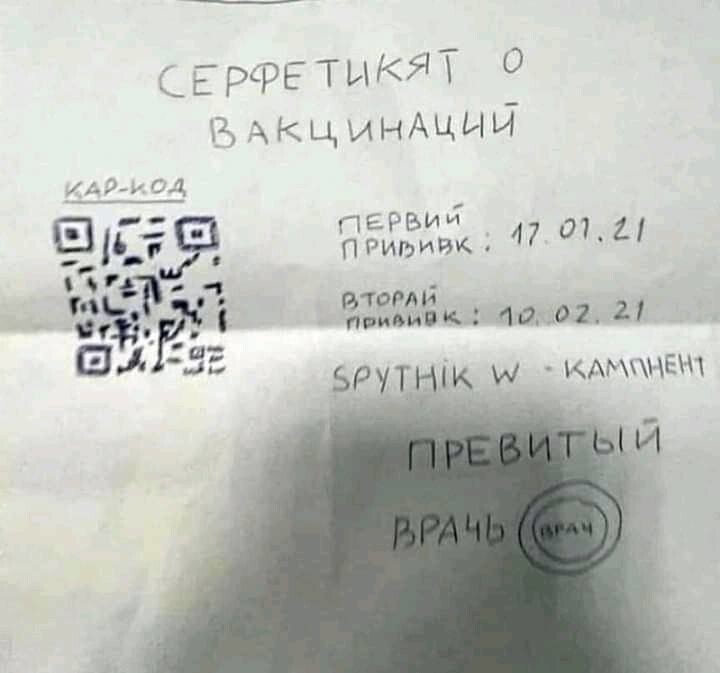 СЕРФЕТИКЯТ О
ВАКЦИНАЦИЙ
КАР-КОД
ПЕРВИЙ
ПРИВИВК : 17.01.21
ВТОРАЙ
ПРИВИВК : 10.02.21
SPYTHiK W - КАМПНЕНТ
ПРЕВИТЫЙ
ВРАЧЬ ВРАЧ